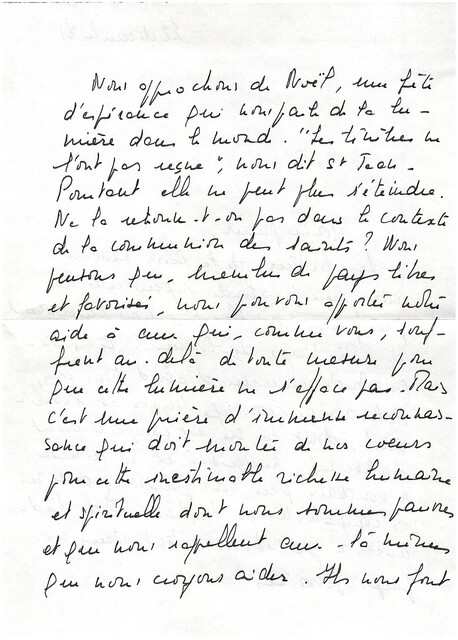 Nous approchons de Noël, une fête
d'espérance qui nous parle de la lu-
mière dans le monde. "Les ténèbres ne
l'ont pas reçue", nous dit St Jean.
Pourtant elle ne peut plus s'éteindre.
Ne la retrouve-t-on pas dans le contexte
de la communion des saints? Nous
pensons que, membres de pays libres
et favorisés, nous pouvons apporter notre
aide à ceux qui, comme vous, souf-
frent au-delà de toute mesure pour
que cette lumière ne s'efface pas. Mais
c'est une prière d'immense reconnais-
sance qui doit monter de nos coeurs
pour cette inestimable richesse humaine
et spirituelle dont nous sommes pauvres
et que nous rappellent ceux-là mêmes
que nous croyons aider. Ils nous font